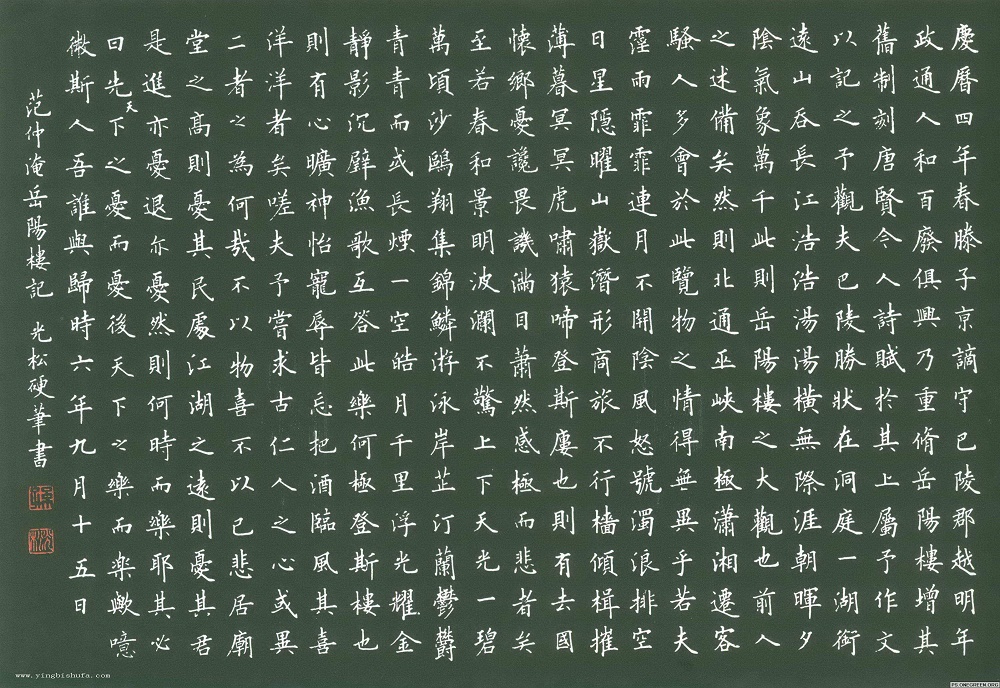 慶曆四年春滕子京謫守巴陵郡越明年
政通人和百廢俱興乃重脩岳陽樓增其
舊制刻唐賢今人詩賦於其上屬予作文
以記之予觀夫巴陵勝狀在洞庭一湖銜
遠山吞長江浩浩湯湯橫無際涯朝暉夕
陰氣象萬千此則岳陽樓之大觀也前人
之述備矣然則北通巫峽南極瀟湘遷客
騷人多會於此覽物之情得無異乎若夫
霪雨霏霏連月不開陰風怒號濁浪排空
日星隱曜山嶽潛形商旅不行檣傾楫摧
薄暮冥冥虎嘯猿啼登斯廔也則有去國
懷鄉憂讒畏譏滿目蕭然感極而悲者矣
至若春和景明波瀾不驚上下天光一碧
萬頃沙鷗翔集錦鱗游泳岸芷汀蘭鬱鬱
青青而或長煙一空皓月千里浮光耀金
靜影沉璧漁歌互答此樂何極登斯樓也
則有心曠神怡寵辱皆忘把酒臨風其喜
洋洋者矣嗟夫予嘗求古仁人之心或異
二者之為何哉不以物喜不以己悲居廟
堂之高則憂其民處江湖之遠則憂其君
是進亦憂退亦憂然則何時而樂耶其必
曰先天下之憂而憂後天下之樂而樂歟噫
微斯人吾誰與歸時六年九月十五日
范仲淹岳陽樓記 光松硬筆書
www.yingbishufa.com
PS.ONEGREEN.ORG